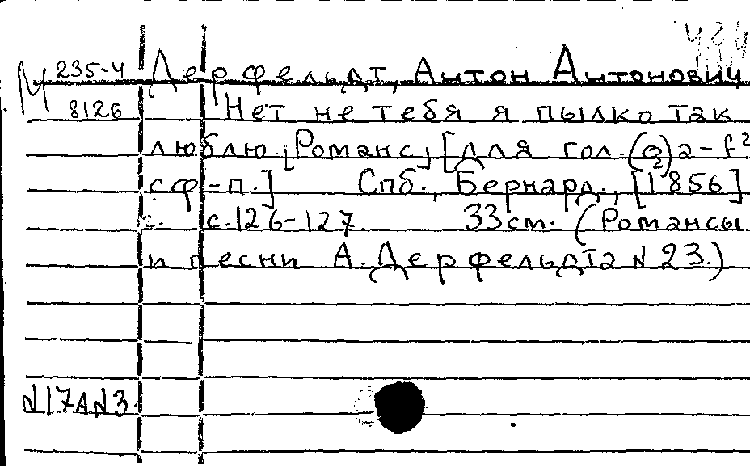 М 235-4 Дерфельдт, Антон Антонович
8126 Нет не тебя я пылко так
люблю [Романс] [для гол.
с ф-п.] Спб., Бернард., [1856]
с. с.126-127 33 см. (Романсы
и песни А. Дерфельдта N 23.)
N17AN3